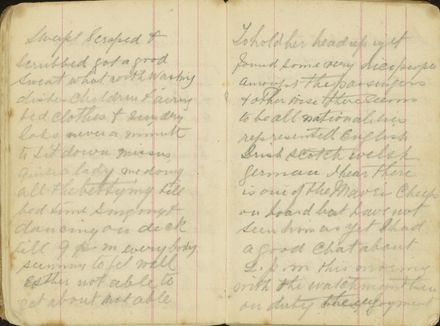 Swept Scraped &
Scrubbed got a good
Sweat what with washing
dishes Children & airing
bed clothes & sundry
jobs never a minute
to sit down
a lady me doing
all the till
bed time Singing &
dancing on deck
till 9 p.m everybody
seeming to get well
Esther not able to
get about not able
To hold her head up yet
found some very nice people
amongst the passengers
& otherwise there seems
to be all nationalities
represented English
Irish scotch welsh
german I hear there
is one of the Maori Chiefs
on board but have not
seen him as yet I had
a good chat about
2. p. m this morning
with the watchman then
on duty the